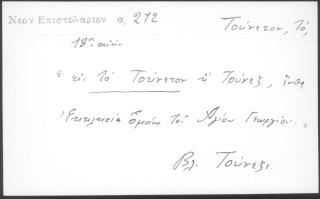 Νεον Επιστολαριον σ, 272
Τούνετον, Τό,
18ος αιών.
εις τό Τούνετον ἤ Τούνεζ, ἔνθα
Ἐκκλησία Ἁγίου Γεωργίου.
Βλ. Τούνεζι.